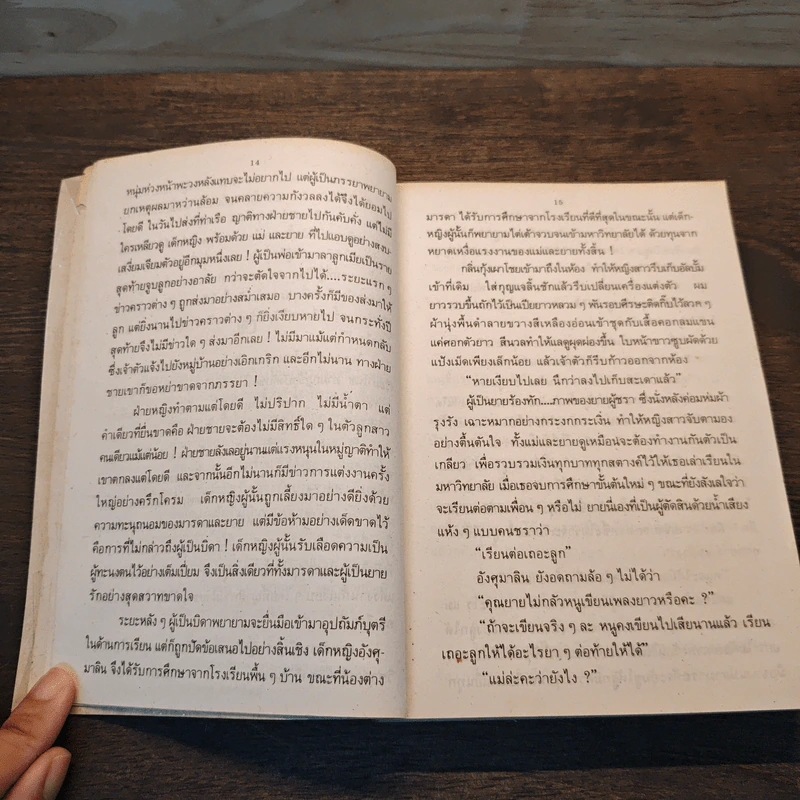 14
หนุ่มห่วงหน้าพะวงหลังแทบจะไม่อยากไป แต่ผู้เป็นภรรยาพยายาม
ยกเหตุผลมาหว่านล้อม จนคลายความกังวลลงได้จึงได้ยอมไป
โดยดี ในวันไปส่งที่ท่าเรือ ญาติทางฝ่ายชายไปกันคับคั่ง แต่ไม่มี
ใครเหลียวดู เด็กหญิง พร้อมด้วย แม่ และยาย ที่ไปแอบดูอย่างสงบ-
เสงี่ยมเจียมตัวอยู่อีกมุมหนึ่งเลย ! ผู้เป็นพ่อเข้ามาลาลูกเมียเป็นราย
สุดท้ายจูบลูกอย่างอาลัย กว่าจะตัดใจจากไปได้....ระยะแรก ๆ
ข่าวคราวต่าง ๆ ถูกส่งมาอย่างสม่ำเสมอ บางครั้งก็มีของส่งมาให้
ลูก แต่ยิ่งนานไปข่าวคราวต่าง ๆ ก็ยิ่งเงียบหายไป จนกระทั่งปี
สุดท้ายจึงไม่มีข่าวใด ๆ ส่งมาอีกเลย ! ไม่มีมาแม้แต่กำหนดกลับ
ซึ่งเจ้าตัวแจ้งไปยังหมู่บ้านอย่างเอิกเกริก และอีกไม่นาน ทางฝ่าย
ชายเขาก็ขอหย่าขาดจากภรรยา !
ฝ่ายหญิงทำตามแต่โดยดี ไม่ปริปาก ไม่มีน้ำตา แต่
คำเดียวที่ยื่นขาดคือ ฝ่ายชายจะต้องไม่มีสิทธิ์ใด ๆ ในตัวลูกสาว
คนเดียวแม้แต่น้อย ! ฝ่ายชายลังเลอยู่นานแต่แรงหนุนในหมู่ญาติทำให้
เขาตกลงแต่โดยดี และจากนั้นอีกไม่นานก็มีข่าวการแต่งงานครั้ง
ใหญ่อย่างครึกโครม เด็กหญิงผู้นั้นถูกเลี้ยงมาอย่างดียิ่งด้วย
ความทะนุถนอมของมารดาและยาย แต่มีข้อห้ามอย่างเด็ดขาดไว้
คือการที่ไม่กล่าวถึงผู้เป็นบิดา ! เด็กหญิงผู้นั้นรับเลือดความเป็น
ผู้ทะนงตนไว้อย่างเต็มเปี่ยม จึงเป็นสิ่งเดียวที่ทั้งมารดาและผู้เป็นยาย
รักอย่างสุดสวาทขาดใจ
ระยะหลัง ๆ ผู้เป็นบิดาพยายามจะยื่นมือเข้ามาอุปถัมภ์บุตรี
ในด้านการเรียน แต่ก็ถูกปัดข้อเสนอไปอย่างสิ้นเชิง เด็กหญิงอังศุ-
มาลิน จึงได้รับการศึกษาจากโรงเรียนพื้น ๆ บ้าน ขณะที่น้องต่าง
15
มารดา ได้รับการศึกษาจากโรงเรียนที่ดีที่สุดในขณะนั้น แต่เด็ก-
หญิงผู้นั้นก็พยายามไต่เต้าจวบจนเข้ามหาวิทยาลัยได้ ด้วยทุนจาก
หยาดเหงื่อแรงงานของแม่และยายทั้งสิ้น !
กลิ่นกุ้งเผาโชยเข้ามาถึงในห้อง ทำให้หญิงสาวรีบเก็บอัลบั้ม
เข้าที่เดิม ใส่กุญแจลิ้นชักแล้วรีบเปลี่ยนเครื่องแต่งตัว ผม
ยาวรวบขึ้นถักไว้เป็นเปียยาวหลวม ๆ พันรอบศีรษะติดกิ๊บไว้ลวก ๆ
ผ้านุ่งพื้นดำลายขวางสีเหลืองอ่อนเข้าชุดกับเสื้อคอกลมแขน
แค่ศอกตัวยาว สีนวลทำให้แลดูผุดผ่องขึ้น ใบหน้าขาวซูบผัดด้วย
แป้งเม็ดเพียงเล็กน้อย แล้วเจ้าตัวก็รีบก้าวออกจากห้อง
“หายเงียบไปเลย นึกว่าลงไปเก็บสะเดาแล้ว”
ผู้เป็นยายร้องทัก....ภาพของยายผู้ชรา ซึ่งนั่งหลังค่อมห่มผ้า
รุ่งริ่ง เฉาะหมากอย่างกระงกกระเงิ่น ทำให้หญิงสาวจับตามอง
อย่างตื้นตันใจ ทั้งแม่และยายดูเหมือนจะต้องทำงานกันตัวเป็น
เกลียว เพื่อรวบรวมเงินทุกบาททุกสตางค์ไว้ให้เธอเล่าเรียนใน
มหาวิทยาลัย เมื่อเธอจบการศึกษาขั้นต้นใหม่ ๆ ขณะที่ยังลังเลใจว่า
จะเรียนต่อตามเพื่อน ๆ หรือไม่ ยายนี่เองที่เป็นผู้ตัดสินด้วยน้ำเสียง
แห้ง ๆ แบบคนชราว่า
“เรียนต่อเถอะลูก”
อังศุมาลิน ยังอดถามล้อ ๆ ไม่ได้ว่า
“คุณยายไม่กลัวหนูเขียนเพลงยาวหรือคะ ?”
“ถ้าจะเขียนจริง ๆ ละ หนูคงเขียนไปเสียนานแล้ว เรียน
เถอะลูกให้ได้อะไรยา ๆ ต่อท้ายให้ได้”
“แม่ล่ะคะว่ายังไง ?”